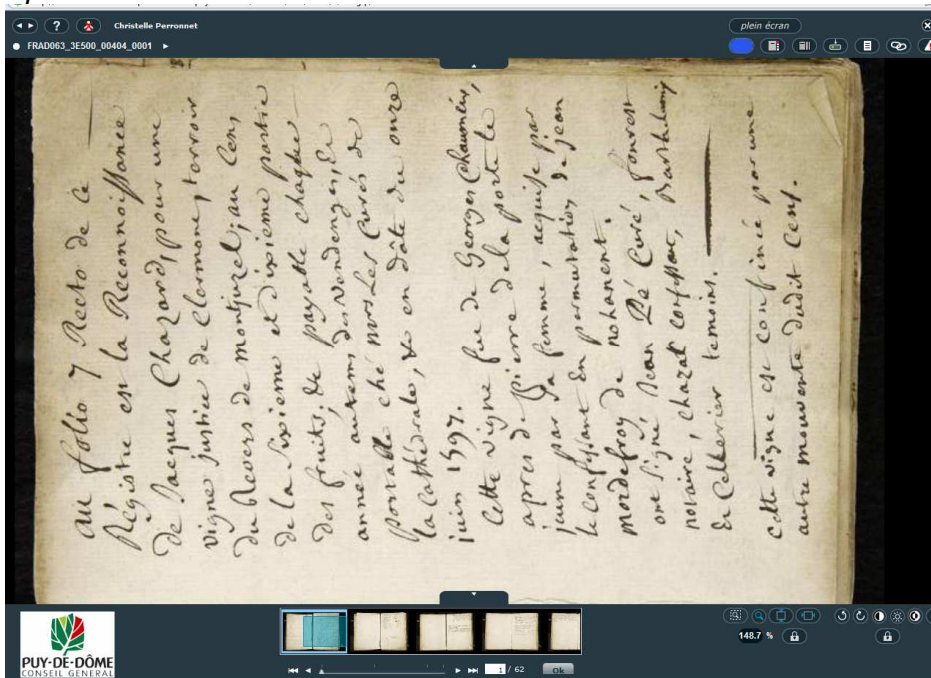 Christelle Perronnet
plein écran
FRAD063_3E500_00404_0001
au folio 7 Recto de ce
Régistre est la Reconnoissance
de Jacques Chazard, pour une
vigne justice de Clermont, terroir
du Revers de montjuzet; au Cens
de la Sixieme et dixieme partie
des fruits, de payable chaque
année au tems des vendenges, Et
portable ché mrs Les Curés de
la Cathédrale, en dâte du onze
juin 1597.
Cette vigne fut de Georges Chauméix,
apres d pierre de la porte le
jeune par Sa femme, acquise par
le Confessant En permutation de jean
mordefroy de nohanent.
ont Signé Jean Curé,
notaire, Chazal Barthelemy
de Cellerier temoins.
cette vigne est confinée par une
autre mouvente dudit Cens.
PUY-DE-DÔME
CONSEIL GENERAL
1 / 62
Ok
148.7 %